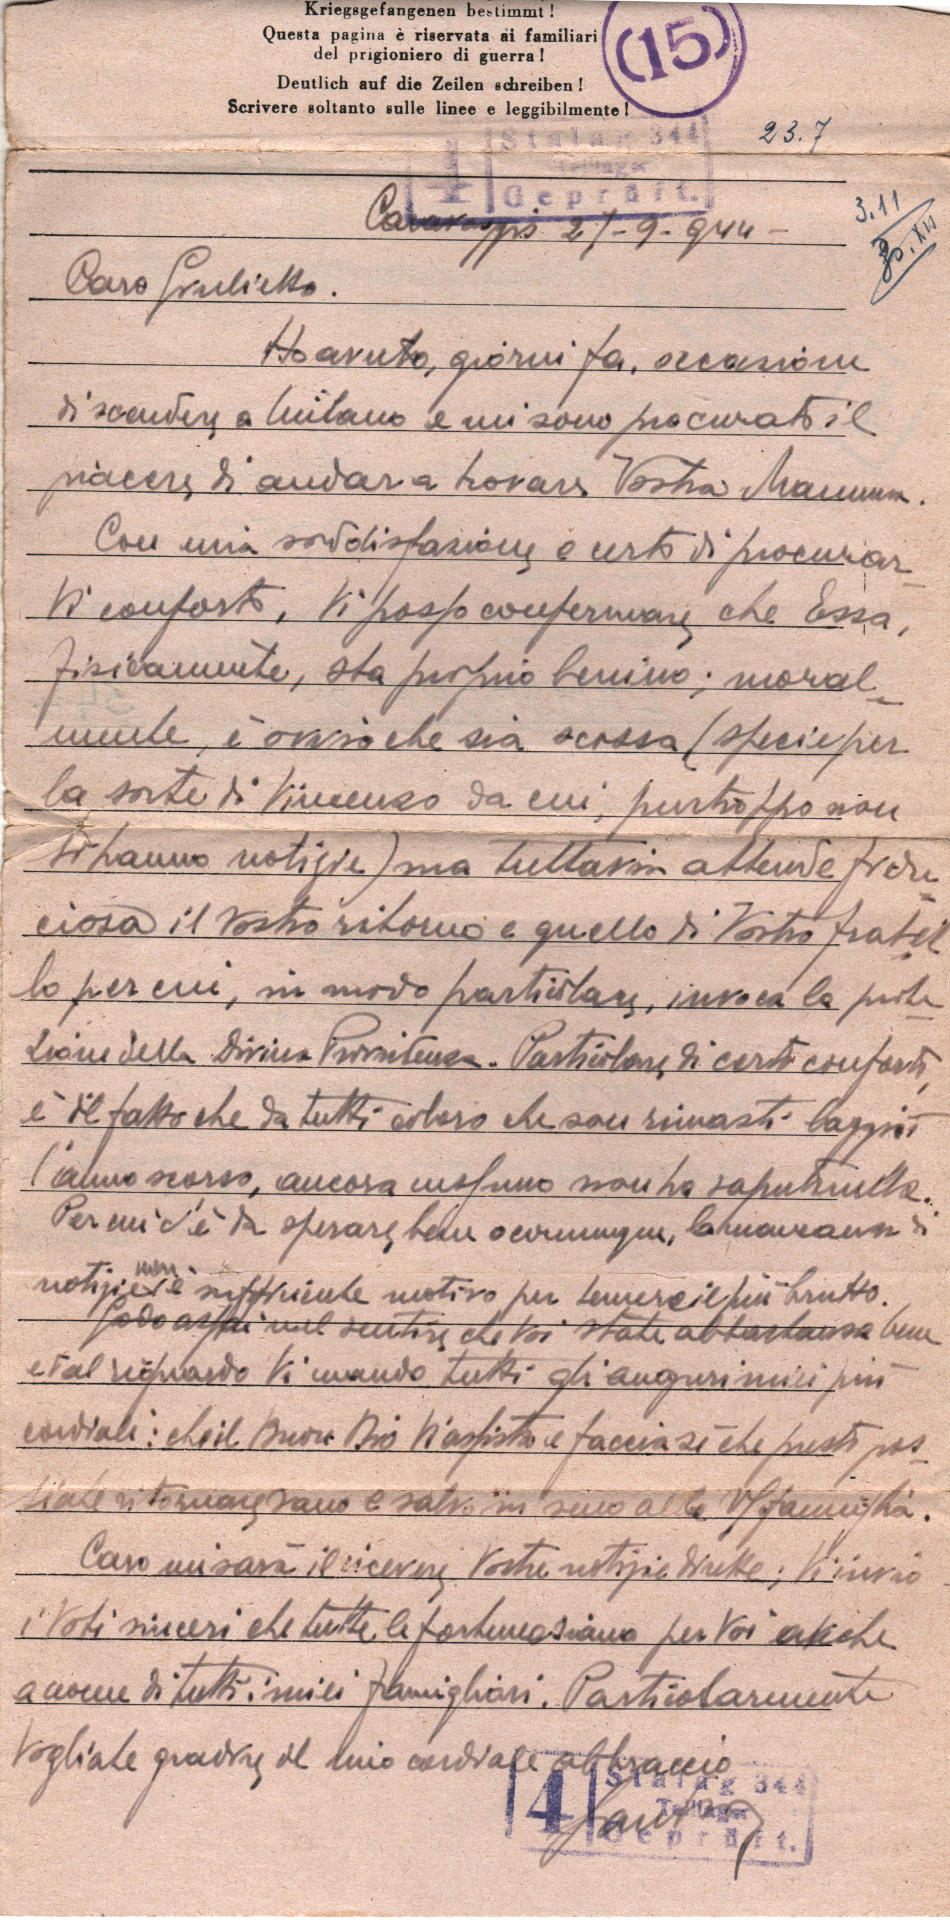 Kriegsgefangenen bestimmt!
Questa pagina è riservata ai familiari
del prigioniero di guerra!
Deutlich auf die Zeilen schreiben!
Scrivere soltanto sulle linee e leggibilmente!
(15)
23.7
4 Stalag 344
Geprüft.
3.11
Caravaggio 27-9-944-
Caro Giulietto.
Ho avuto, giorni fa, occasione
di scendere a Milano e mi sono procurato il
piacere di andar a trovare Vostra Mamma.
Con mia soddisfazione e certo di procurar-
Vi conforto, Vi posso confermare che Essa,
fisicamente, sta proprio benino; moral-
mente, è ovvio che sia scossa (specie per
la sorte di Vincenzo da cui, purtroppo non
si hanno notizie) ma tuttavia attende fidu-
ciosa il Vostro ritorno e quello di Vostro fratel-
lo per cui, in modo particolare, invoca la prote-
zione della Divina Provvidenza. Particolare di certo conforto,
è il fatto che da tutti coloro che son rimasti laggiù
l'anno scorso, ancora nessuno non ha saputo nulla.
Per cui c'è da sperare bene e comunque, la mancanza di
notizie non è sufficiente motivo per temere il più brutto.
Godo assai nel sentire che Voi state abbastanza bene
e al riguardo Vi mando tutti gli auguri miei più
cordiali: che il Buon Dio Vi assista e faccia sì che presto pos-
siate ritornare sano e salvo in seno alla Vs/ famiglia.
Caro mi sarà il ricevere Vostre notizie dirette; Vi invio
i voti sinceri che tutte le fortune siano per Voi anche
a nome di tutti i miei famigliari. Particolarmente
Vogliate gradire il mio cordiale abbraccio
4 Stalag 344
Teschen
Geprüft.